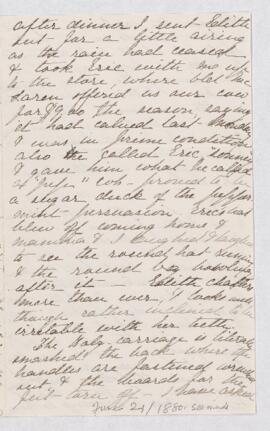 after dinner I sent Edith
out for a little airing
as the rain had ceased
& took Eric with me up
to the store, where
offered us our cow
for the season, saying
it had calved last
& was in prime condition
also called Eric
& gave him what he called
a
a sugar duck of the pepper
mint persuasion Eric had
of coming home &
mamma & I laughed
to see the round hat
& the round
after it — Edith chatters
more than ever, & looks well
though rather inclined to be
irritable with her teeth.
The Baby-carriage is literally
smashed the back where the
handles are fastened wrenched
out & the boards for the
feet torn off - I have asked
June 21/1880. seconds